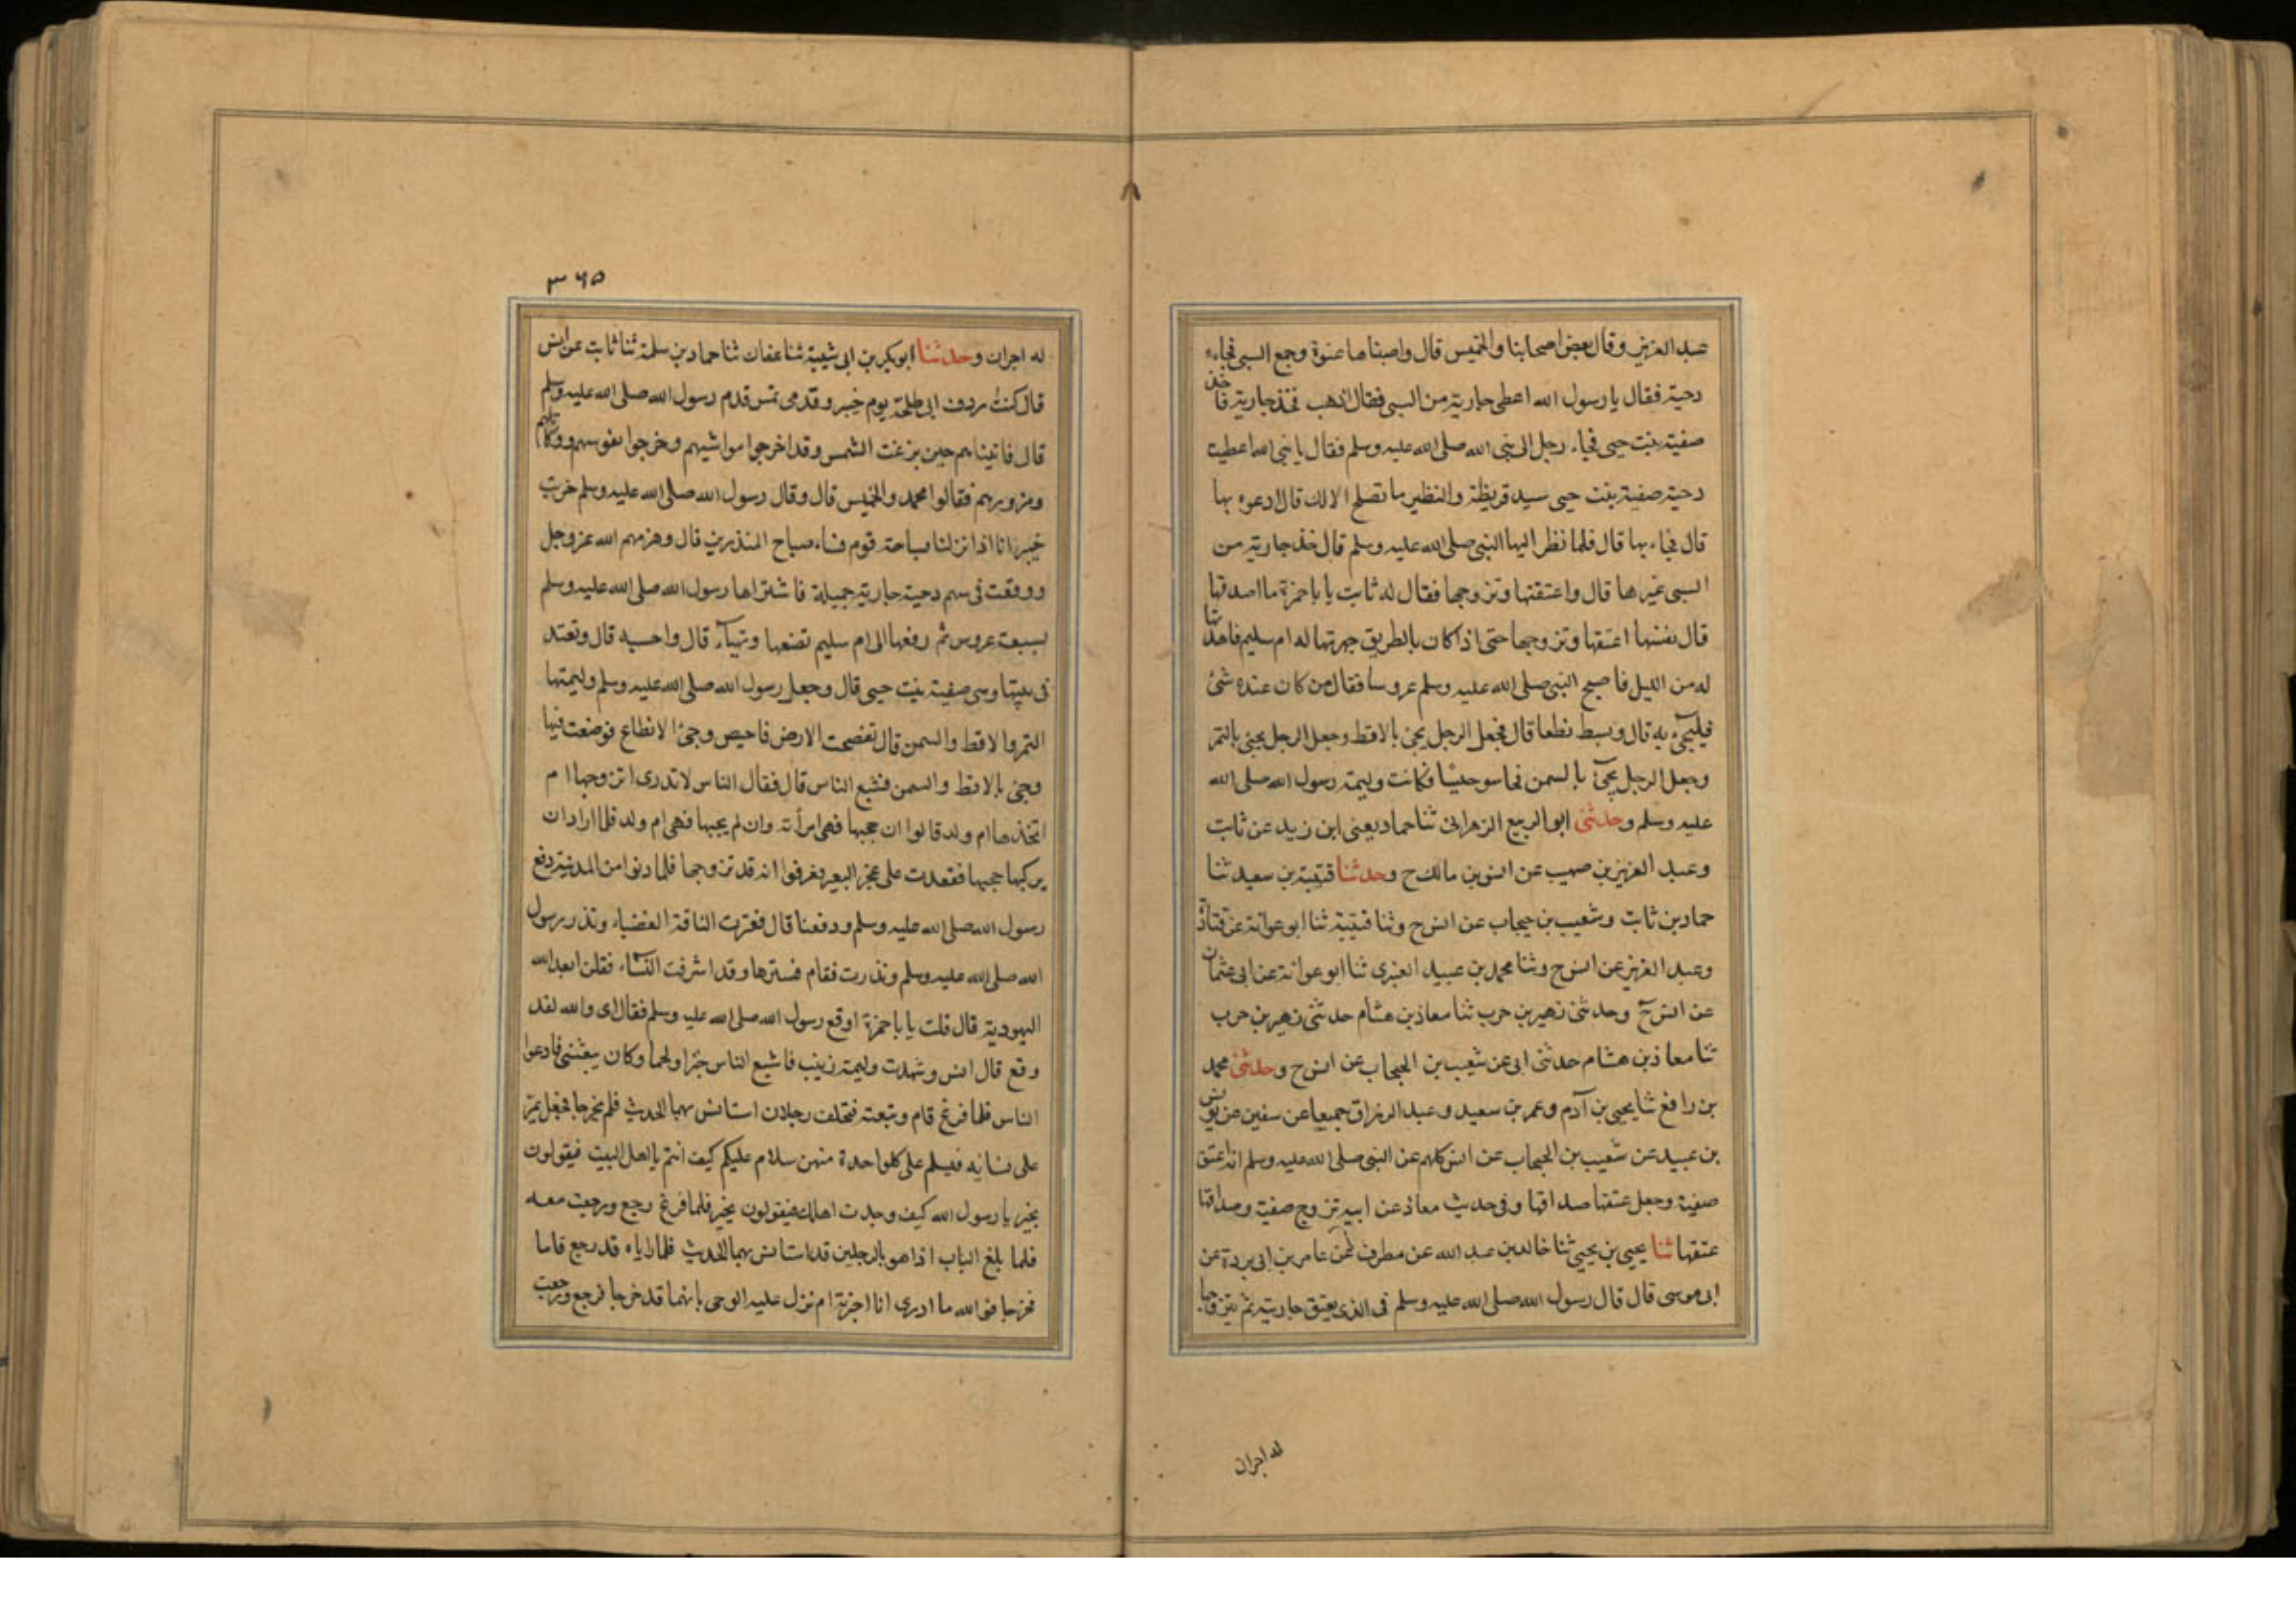 عبد العزيز وقال بعض اصحابنا والخميس قال واصبناها عنوة وجمع السبى فجاءه
دحية فقال يا رسول الله اعطى جارية من السبى فقال اذهب فخذ جارية فاخذ
صفية بنت حيى فجاء رجل الى نبى الله صلى الله عليه وسلم فقال يا نبى الله اعطيت
دحية صفية بنت حيى سيد قريظة والنظير ما تصلح الا لك قال ادعوه بها
قال فجاء بها قال فلما نظر اليها النبى صلى الله عليه وسلم قال خذ جارية من
السبى غيرها قال واعتقتها وتزوجها فقال له ثابت يا باحمزة ما اصدقها
قال نفسها اعتقها وتزوجها حتى اذا كان بالطريق جهزتها له ام سليم فاهدتها
له من الليل فاصبح النبى صلى الله عليه وسلم عروسا فقال من كان عنده شئ
فليجئ به قال وبسط نطعا قال فجعل الرجل يجئ بالاقط وجعل الرجل يجئ بالتمر
وجعل الرجل يجئ بالسمن فحاسو حيسا فكانت وليمة رسول الله صلى الله
عليه وسلم وحدثنى ابو الربيع الزهرانى ثنا حماد يعنى ابن زيد عن ثابت
وعبد العزيز بن صهيب عن انس بن مالك ح وحدثنا قتيبة بن سعيد ثنا
حماد بن ثابت وشعيب بن حبحاب عن انس ح وثنا قتيبة ثنا ابو عوانة عن قتادة
وعبد العزيز عن انس ح وثنا محمد بن عبيد الغبرى ثنا ابو عوانة عن ابى عثمان
عن انس ح وحدثنى زهير بن حرب ثنا معاذ بن هشام حدثنى زهير بن حرب
ثنا معاذ بن هشام حدثنى ابى عن شعيب بن الحبحاب عن انس ح وحدثنى محمد
بن رافع ثنا يحيى بن آدم وعمر بن سعيد وعبد الرزاق جميعا عن سفين عن يونس
بن عبيد عن شعيب بن الحبحاب عن انس كلهم عن النبى صلى الله عليه وسلم انه اعتق
صفية وجعل عتقها صداقها وفى حديث معاذ عن ابيه تزوج صفية وصداقها
عتقها ثنا يحيى بن يحيى ثنا خالد بن عبد الله عن مطرف عن عامر بن ابى بردة عن
ابى موسى قال قال رسول الله صلى الله عليه وسلم فى الذى يعتق جاريته ثم يتزوجها
له اجران
٣٦٥
له اجران وحدثنا ابو بكر بن ابى شيبة ثنا عفان ثنا حماد بن سلمة ثنا ثابت عن انس
قال كنت ردف ابى طلحة يوم خيبر وقدمى تمس قدم رسول الله صلى الله عليه وسلم
قال فاتيناهم حين بزغت الشمس وقد اخرجوا مواشيهم وخرجوا بفوسهم ومكاتلهم
ومزورهم فقالوا محمد والخميس قال وقال رسول الله صلى الله عليه وسلم خربت
خيبر انا اذا نزلنا بساحة قوم فساء صباح المنذرين قال وهزمهم الله عز وجل
ووقعت فى سهم دحية جارية جميلة فاشتراها رسول الله صلى الله عليه وسلم
بسبعة عروس ثم دفعها الى ام سليم تصنعها وتهيأ قال واحسبه قال وتعتد
فى بيتها وهى صفية بنت حيى قال وجعل رسول الله صلى الله عليه وسلم وليمتها
التمر والاقط والسمن قال تفحصت الارض فاحيص وجئ الانطاع فوضعت فيها
وجئ بالاقط والسمن فشبع الناس قال فقال الناس لا ندرى اتزوجها ام
اتخذها ام ولد قالوا ان حجبها فهى امرأته وان لم يحجبها فهى ام ولد فلما اراد ان
يركبها حجبها فقعدت على عجز البعير فعرفوا انه قد تزوجها فلما دنوا من المدينة دفع
رسول الله صلى الله عليه وسلم ودفعنا قال فعثرت الناقة العضباء وندر رسول
الله صلى الله عليه وسلم وندرت فقام فسترها وقد اشرفت النساء فقلن ابعد الله
اليهودية قال قلت يا باحمزة اوقع رسول الله صلى الله عليه وسلم فقال اى والله لقد
وقع قال انس وشهدت وليمة زينب فاشبع الناس خبزا ولحما وكان يبعثنى فادعوا
الناس فلما فرغ قام وتبعته فتخلف رجلان استانس بهما الحديث فلم يخرجا فجعل يمر
على نسائه فيسلم على كل واحدة منهن سلام عليكم كيف انتم يا اهل البيت فيقولون
بخير يا رسول الله كيف وجدت اهلك فيقولون بخير فلما فرغ رجع ورجعت معه
فلما بلغ الباب اذا هو بالرجلين قد استانس بهما الحديث فلما راياه قد رجع قاما
فخرجا فوالله ما ادرى انا اخبرته ام نزل عليه الوحى بانهما قد خرجا فرجع ورجعت